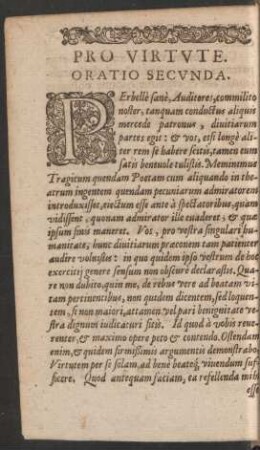 PRO VIRTVTE.
ORATIO SECVNDA.
PErbellè sanè, Auditores, commilito
noster, tanquam conductus aliquis
mercede patronus, diuitiarum
partes egit: & vos, etsi longè ali-
ter rem se habere scitis, tamen eum
satis beneuole tulistis. Meminimus
Tragicum quendam Poetam cum aliquando in the-
atrum ingentem quendam pecuniarum admiratorem
introduxisset, eiectum esse ante à spectatoribus, quam
vidissent, quonam admirator ille euaderet; & quæ
ipsum finis maneret. Vos, pro vestra singulari hu-
manitate, hunc diuitiarum præconem tam patienter
audire voluistis: in quo quidem ipso vestrum de hoc
exercitij genere sensum non obscurè declarastis. Qua-
re non dubito, quin me, de rebus verè ad beatam vi-
tam pertinentibus, non quidem dicentem, sed loquen-
tem, si non maiori, attamen vel pari benignitate ve-
stra dignum iudicaturi sitis. Id quod à vobis reue-
renter, & maximo opere peto & contendo. Ostendam
enim, & quidem firmissimis argumentis demonstrabo,
Virtutem per se solam, ad bene beateq́; viuendum suf-
ficere. Quod antequam faciam, ea refellenda mihi
esse